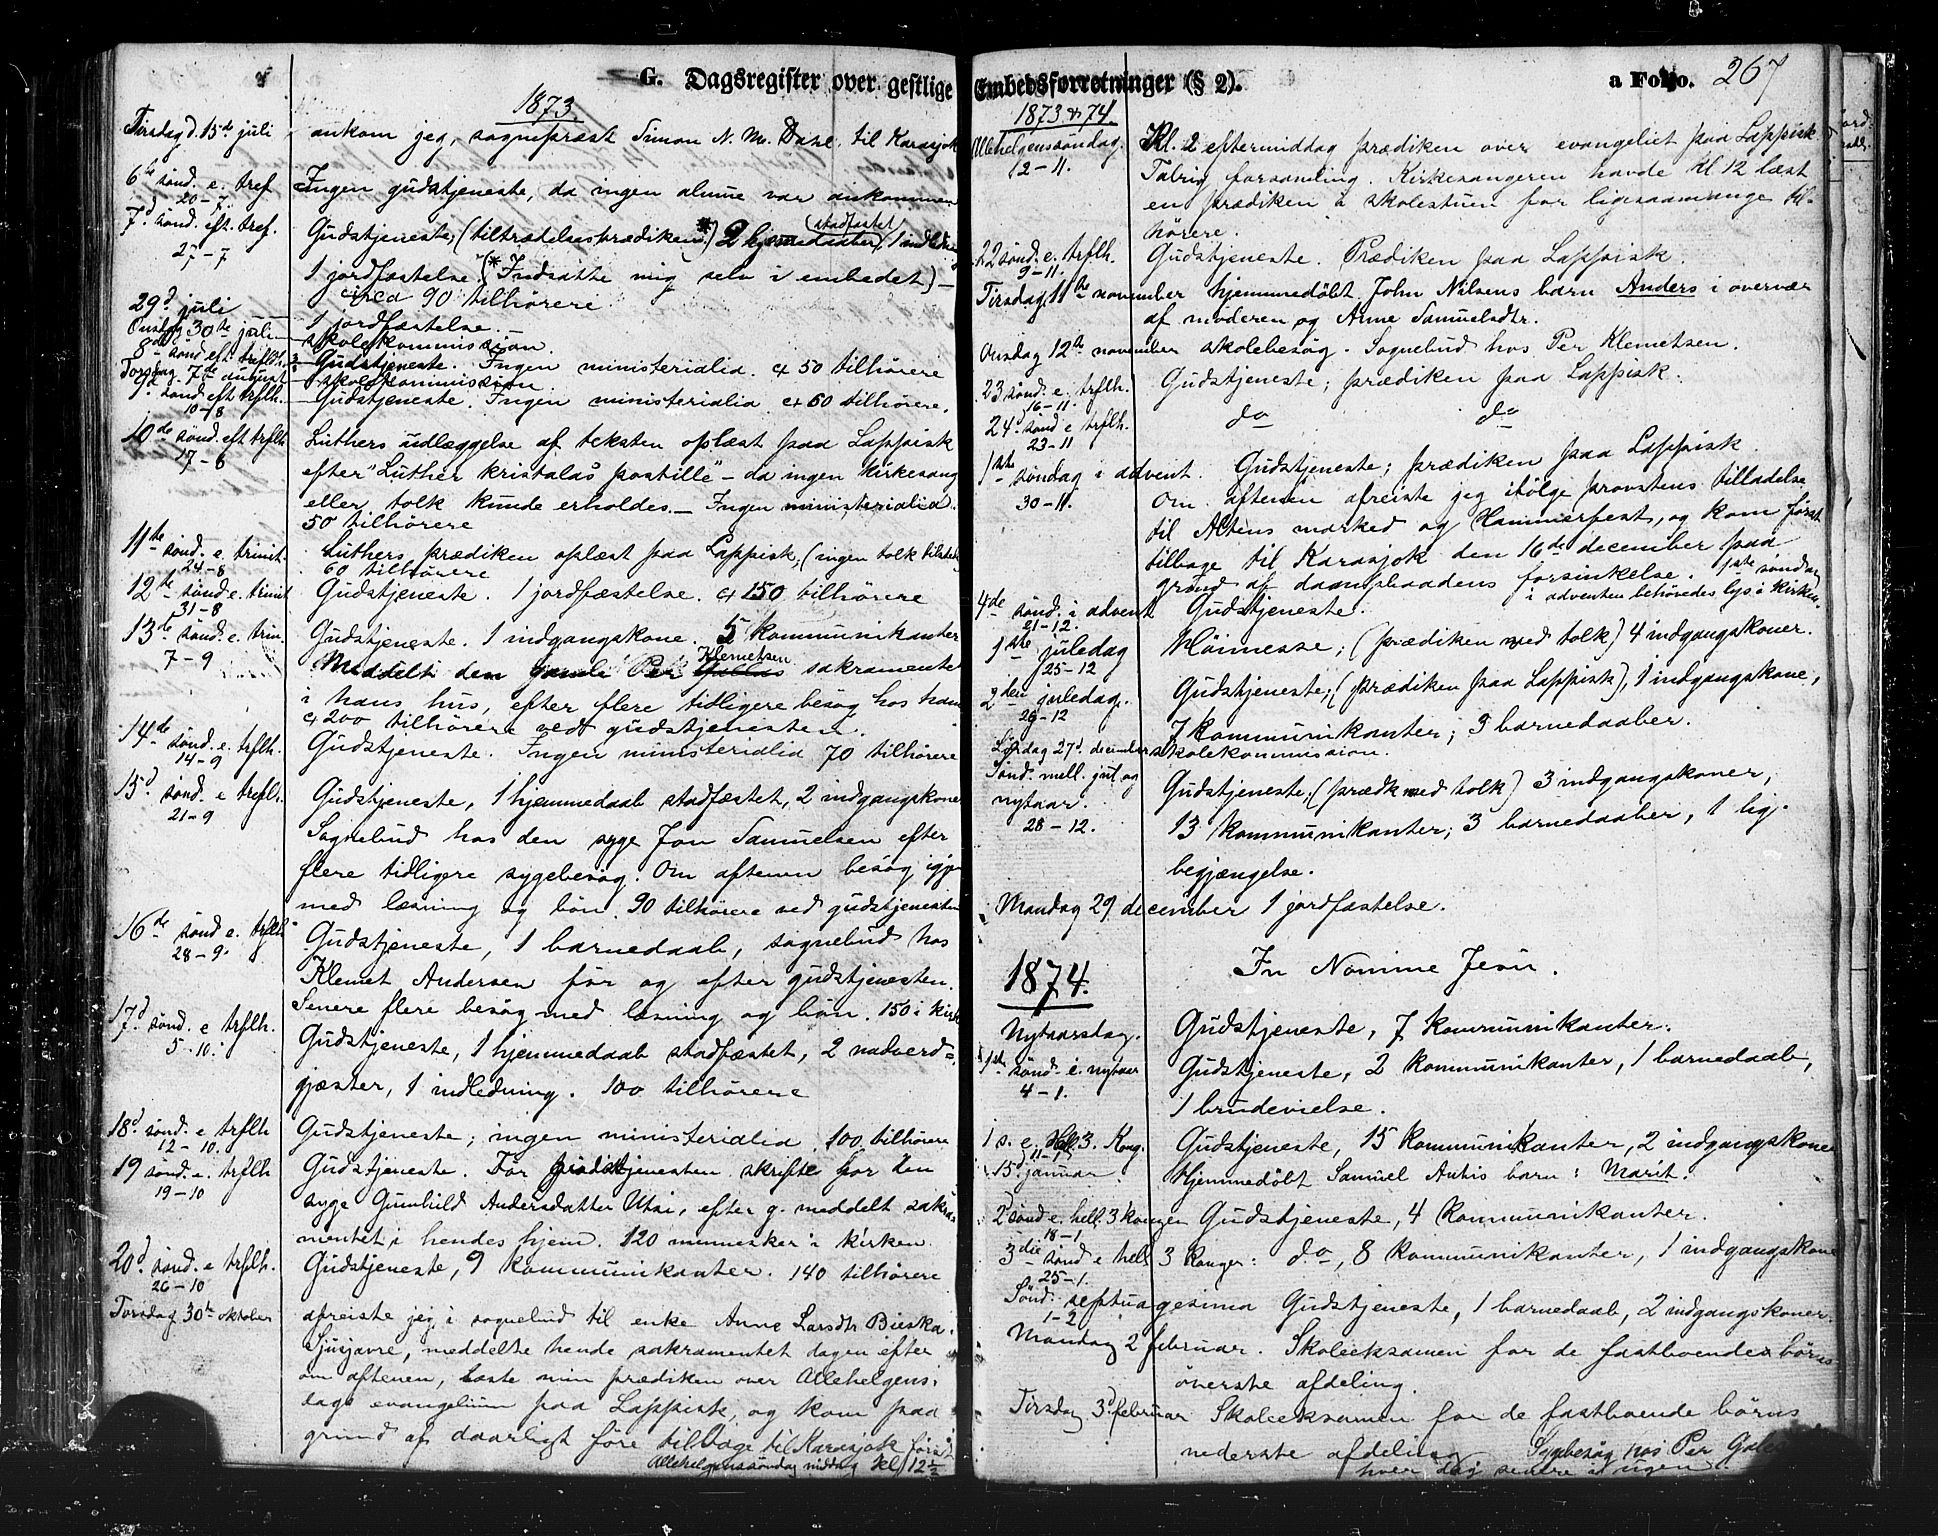 G. Dagsregister over gestlige
1873.
Tirsdag d. 15d juli ankom jeg, sognepræst Simon N. M. Dahl, til Karasjok
6te sønd. e. tref. Ingen gudstjeneste, da ingen almue var ankommen
20-7.
7d sønd. eft. tref. Gudstjeneste, (tiltrædelsesprædiken*) 2 hjemmedaaber stadfæstet, 1 indledn
27-7
1 jordfæstelse (* Indsatte mig selv i embedet) —
circa 90 tilhørere.
29d juli 1 jordfæstelse.
Onsdag 30te juli skolekommission.
8de sønd eft. treflh. Gudstjeneste. Ingen ministerialia. ca 50 tilhørere
Torsdag 7de august skolekommission.
9d sønd eft trflh. Gudstjeneste. Ingen ministerialia. ca 60 tilhørere.
10-8
10de sønd. eft trflh. Luthers udlæggelse af teksten oplæst paa Lappisk
17-8
efter "Luther kristalaš postille" – da ingen kirkesang
eller tolk kunde erholdes. – Ingen ministerialia.
50 tilhørere
11te sønd. e. trinit. Luthers prædiken oplæst paa Lappisk, (ingen tolk tilstede
24-8
60 tilhørere
12te sønd e. trinit Gudstjeneste. 1 jordfæstelse. ca 150 tilhørere
31-8
13de sønd. e. trin. Gudstjeneste. 1 indgangskone. 5 kommunikanter
7-9
Meddelt den gamle Per Klemetsen sakramentet
i hans hus, efter flere tidligere besøg hos ham
ca 200 tilhørere ved gudstjenesten.
14de sønd. e. trflh. Gudstjeneste. Ingen ministerialia 70 tilhørere
14-9
15d sønd. e trefh. Gudstjeneste, 1 hjemmedaab stadfæstet, 2 indgangskone
21-9
Sognebud hos den syge Jon Samuelsen efter
flere tidligere sygebesøg. Om aftenen besøg igjen
med læsning og bøn. 90 tilhørere ved gudstjenesten
16de sønd e. trflh Gudstjeneste, 1 barnedaab, sognebud hos
28-9.
Klemet Andersen før og efter gudstjenesten.
Senere flere besøg med læsning og bøn. 150 i kirk
17d sønd. e trflh. Gudstjeneste, 1 hjemmedaab stadfæstet, 2 nadverd=
5-10.
gjæster, 1 indledning. 100 tilhørere
18d sønd. e trflh Gudstjeneste; ingen ministerialia. 100 tilhørere
12-10.
19 sønd. e. trflh Gudstjeneste. Før gudstjenesten skrifte for den
19-10
syge Gunhild Andersdatter Utsi, efter g. meddelt sakra
mentet i hendes hjem. 120 mennesker i kirken.
20d sønd. e trflh. Gudstjeneste, 9 kommunikanter. 140 tilhørere
26-10
Torsdag 30te oktober afreiste jeg i sognebud til enke Anne Larsdtr Bieska.
Sjusjavre, meddelte hende sakramentet dagen efter
om aftenen, læste min prædiken over Allehelgens-
dags evangelium paa Lappisk, og kom paa
grund af daarligt føre tilbage til Karasjok først
Allehelgenssøndag middag kl 12½
Embedsforretninger (§ 2). a Folio. 267
1873 & 74.
Allehelgenssøndag. Kl. 2 eftermiddag prædiken over evangeliet paa Lappisk
2-11.
Talrig forsamling. Kirkesangeren havde kl 12 læst
en prædiken i skolestuen for ligesaamange til-
hørere.
22 sønd. e. trflh. Gudstjeneste. Prædiken paa Lappisk.
9-11.
Tirsdag 11te november hjemmedøbt John Nilsens barn Anders i overvær
af moderen og Anne Samuelsdtr.
Onsdag 12te november skolebesøg. Sognebud hos Per Klemetsen.
23 sønd. e. trflh. Gudstjeneste; prædiken paa Lappisk.
16-11.
24. sønd e trflh. do do
23-11
1ste søndag i advent. Gudstjeneste; prædiken paa Lappisk.
30-11.
Om aftenen afreiste jeg ifølge provstens tilladelse
til Altens marked og Hammerfest, og kom først
tilbage til Karasjok den 16de december paa
grund af dampbaadens forsinkelse. 1ste søndag
i adventen behøvedes lys i kirken.
4de sønd. i advent Gudstjeneste.
21-12.
1ste juledag Høimesse; (prædiken med tolk) 4 indgangskoner.
25-12
2den juledag. Gudstjeneste; (prædiken paa Lappisk), 1 indgangskone,
26-12
7 kommunikanter; 3 barnedaaber.
Lørdag 27d. december skolekommission.
Sønd. mell. jul og Gudstjeneste. (prædk med tolk) 3 indgangskoner,
nytaar. 13 kommunikanter; 3 barnedaaber, 1 lig-
28-12.
begjængelse.
Mandag 29 december 1 jordfæstelse.
1874. In Nomine Jesu.
Nytaarsdag. Gudstjeneste, 7 kommunikanter.
1ste sønd. e. nytaar Gudstjeneste, 2 kommunikanter, 1 barnedaab,
4-1.
1 brudevielse.
1 s. e. Hel 3. Kong. Gudstjeneste, 15 kommunikanter, 2 indgangskone
11-1
15. januar Hjemmedøbt Samuel Antis barn: Marit.
2d sønd e. hell. 3 konger Gudstjeneste, 4 kommunikanter.
18-1
3die sønd e hell 3 konger: do, 8 kommunikanter, 1 indgangskone
25-1.
Sønd. septuagesima Gudstjeneste, 1 barnedaab, 2 indgangskoner.
1-2
Mandag 2 februar. Skoleeksamen for de fastboendes børns
øverste afdeling.
Tirsdag 3d februar Skoleeksamen for de fastboende børns
nederste afdeling Sygebesøg hos Per
hver dag senere i ugen.